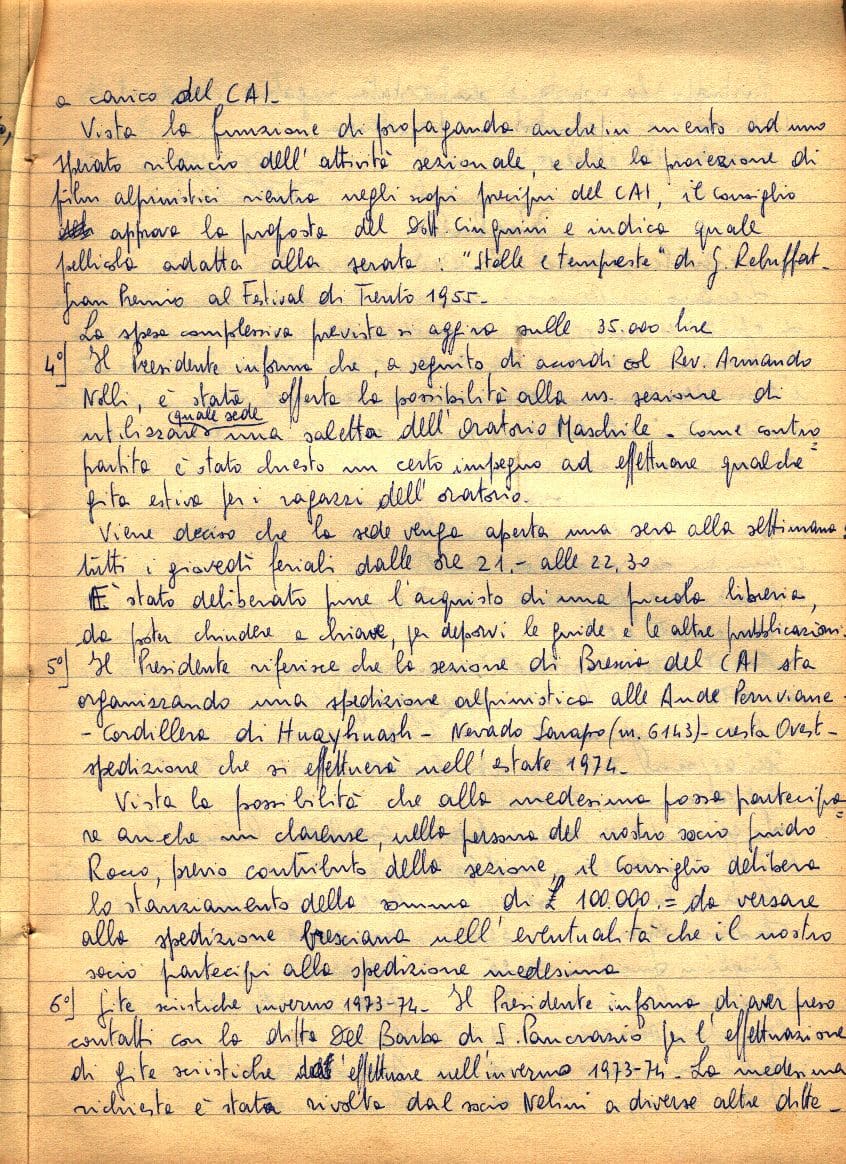 a carico del CAI.
Vista la funzione di propaganda anche in merito ad uno
sperato rilancio dell'attività sezionale, e che la proiezione di
film alpinistici rientra negli scopi precipui del CAI, il consiglio
approva la proposta del Dott. Cinquini e indica quale
pellicola adatta alla serata: "Stelle e tempeste" di G. Rebuffat.
Gran Premio al Festival di Trento 1955.
La spesa complessiva prevista si aggira sulle 35.000 lire
4°] Il Presidente informa che, a seguito di accordi col Rev. Armando
Nolli, è stata offerta la possibilità alla ns. sezione di
utilizzare quale sede una saletta dell'Oratorio Maschile. Come contro=
partita è stato chiesto un certo impegno ad effettuare qualche
gita estiva per i ragazzi dell'oratorio.
Viene deciso che la sede venga aperta una sera alla settimana:
tutti i giovedì feriali dalle ore 21.- alle 22,30
È stato deliberato pure l'acquisto di una piccola libreria,
da poter chiudere a chiave, per deporvi le guide e le altre pubblicazioni.
5°] Il Presidente riferisce che la sezione di Brescia del CAI sta
organizzando una spedizione alpinistica alle Ande Peruviane -
- Cordillera di Huayhuash - Nevado Sarapo (m. 6143) - cresta Ovest -
spedizione che si effettuerà nell'estate 1974.
Vista la possibilità che alla medesima possa partecipa=
re anche un clarense, nella persona del nostro socio Guido
Rocco, previo contributo della sezione, il Consiglio delibera
lo stanziamento della somma di £ 100.000.= da versare
alla spedizione bresciana nell'eventualità che il nostro
socio partecipi alla spedizione medesima
6°] Gite sciistiche inverno 1973-74. Il Presidente informa di aver preso
contatti con la ditta Del Barba di S. Pancrazio per l'effettuazione
di gite sciistiche effettuare nell'inverno 1973-74. La medesima
richiesta è stata rivolta dal socio Nelini a diverse altre ditte.